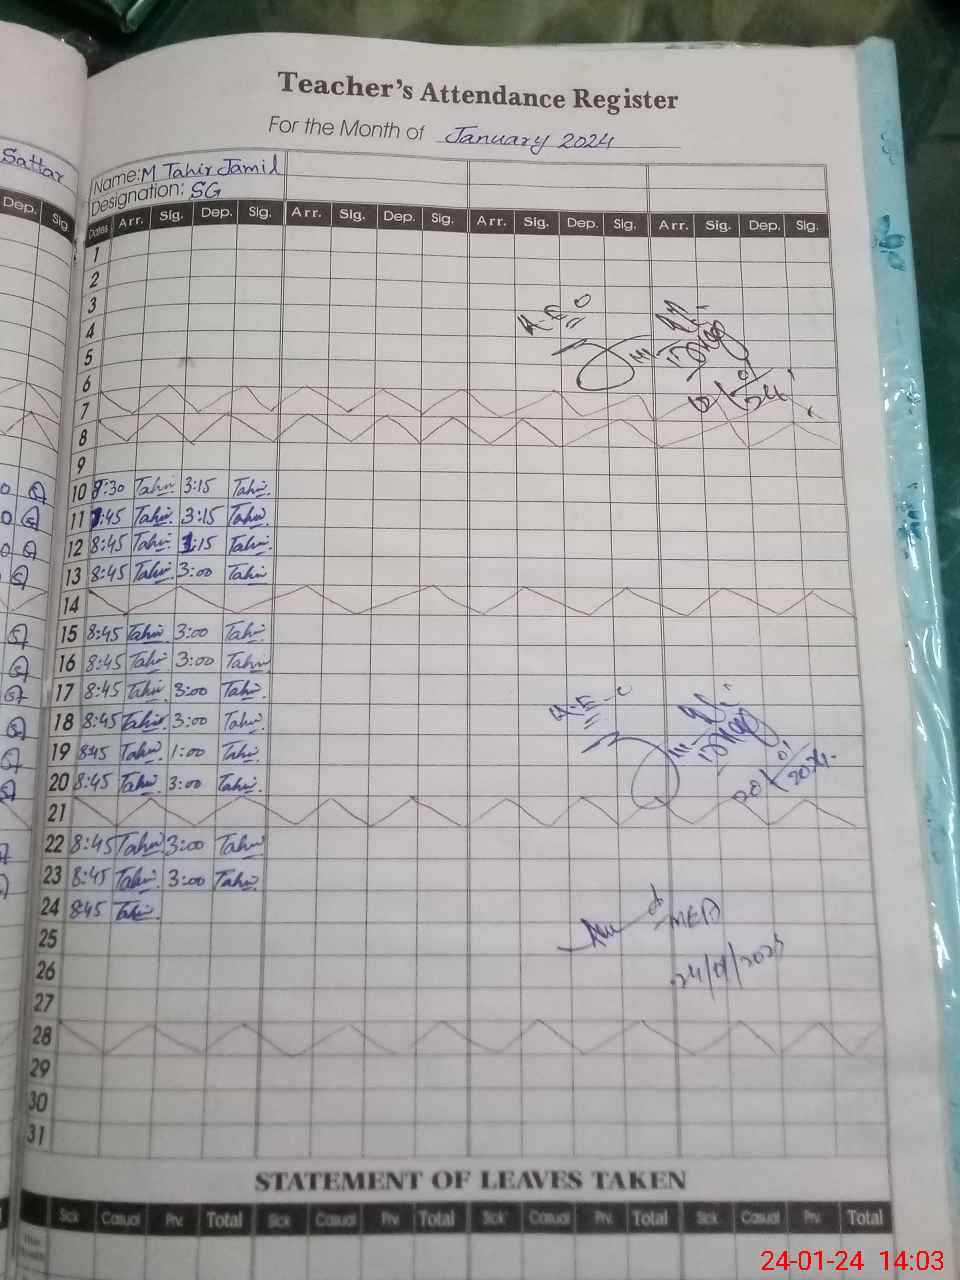 Teacher's Attendance Register
For the Month of January 2024
Sattar
Name: M Tahir Jamil
Designation: SG
Dep. Sig.
Dates Arr. Sig. Dep. Sig. Arr. Sig. Dep. Sig. Arr. Sig. Dep. Sig. Arr. Sig. Dep. Sig.
1
2
3
4
5
6
7
8
9
10 8:30 Tahir 3:15 Tahir
11 :45 Tahir 3:15 Tahir
12 8:45 Tahir :15 Tahir
13 8:45 Tahir 3:00 Tahir
14
15 8:45 Tahir 3:00 Tahir
16 8:45 Tahir 3:00 Tahir
17 8:45 Tahir 3:00 Tahir
18 8:45 Tahir 3:00 Tahir
19 8:45 Tahir 1:00 Tahir
20 8:45 Tahir 3:00 Tahir
21
22 8:45 Tahir 3:00 Tahir
23 8:45 Tahir 3:00 Tahir
24 8:45 Tahir
25
26
27
28
29
30
31
A.E.O
A.E.O
20/01/2024
MEA
24/01/2023
STATEMENT OF LEAVES TAKEN
Sick Casual Prv. Total Sick Casual Prv. Total Sick Casual Prv. Total Sick Casual Prv. Total
24-01-24 14:03